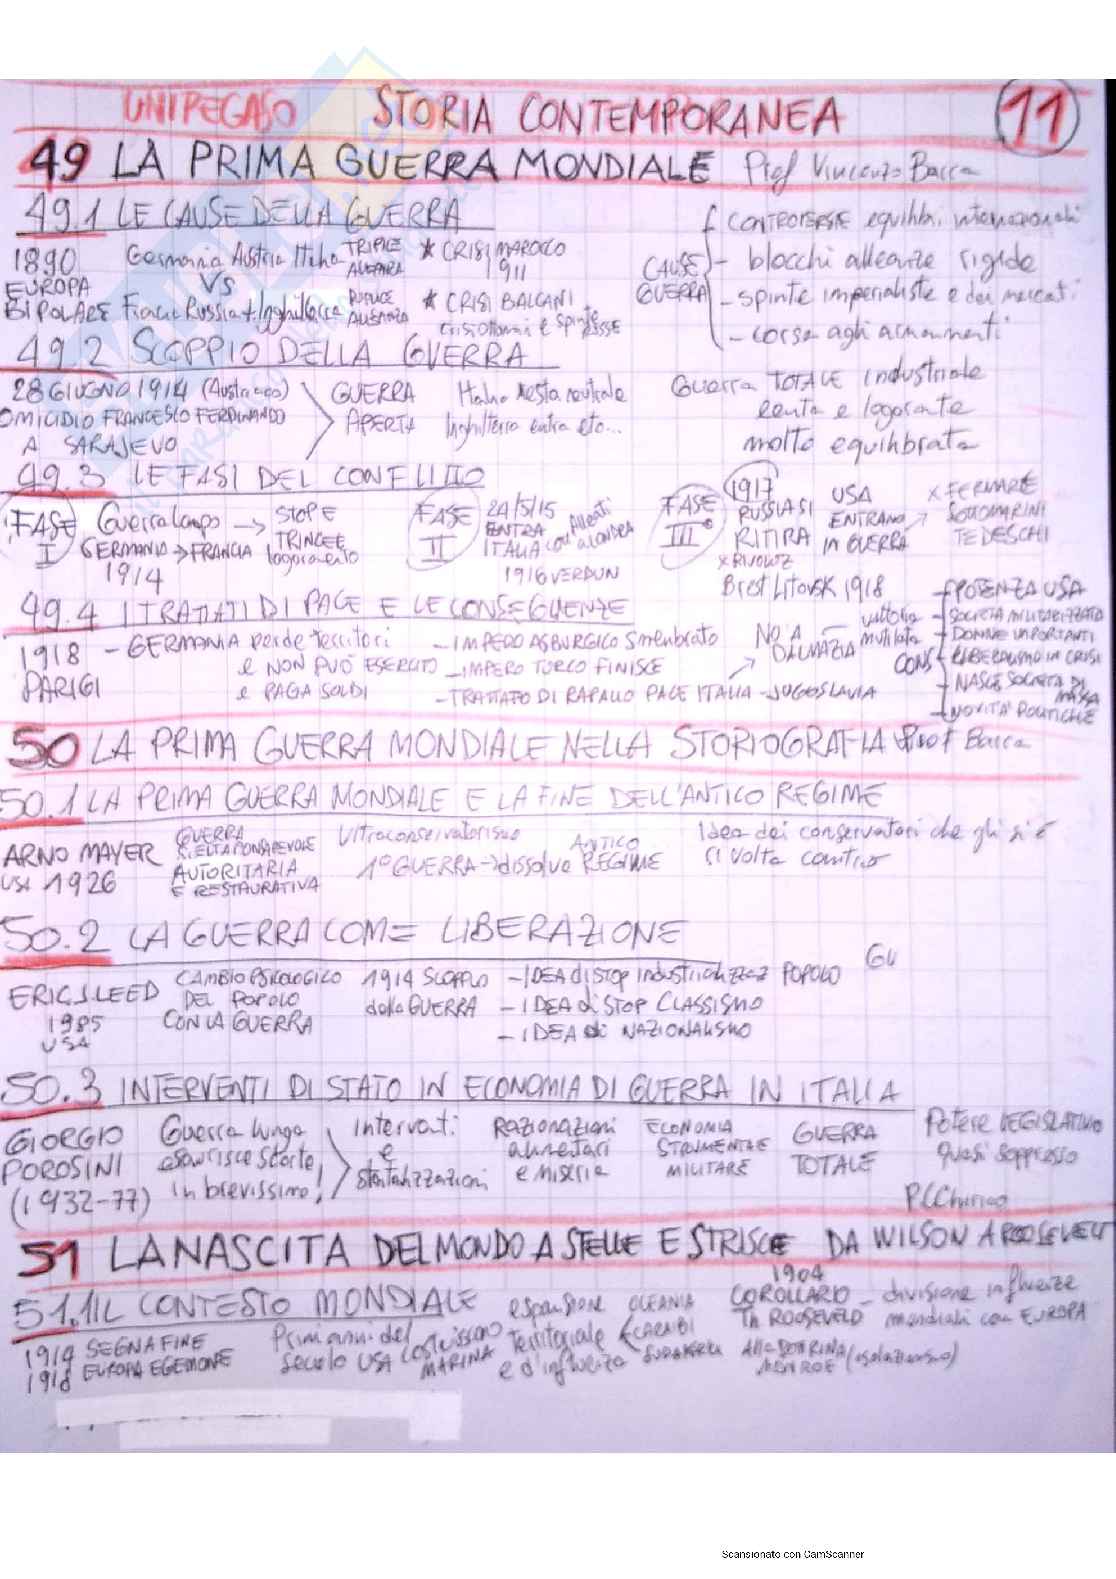 UNIPEGASO STORIA CONTEMPORANEA 11
49 LA PRIMA GUERRA MONDIALE Prof Vincenzo Barra
49.1 LE CAUSE DELLA GUERRA
1890 EUROPA BIPOLARE
Germania Austria Italia TRIPLICE ALLEANZA
VS
Francia Russia + Inghilterra DUPLICE ALLEANZA
* CRISI MAROCCO 1911
* CRISI BALCANI
crisi ottomani e spinte
CAUSE GUERRA
- CONTROVERSIE equilibri internazionali
- blocchi alleanze rigide
- spinte imperialiste e dei mercati
- corsa agli armamenti
49.2 SCOPPIO DELLA GUERRA
28 GIUGNO 1914 (Austriaco)
OMICIDIO FRANCESCO FERDINANDO
A SARAJEVO
GUERRA APERTA
Italia resta neutrale
Inghilterra entra etc...
Guerra TOTALE industriale
lenta e logorante
molto equilibrata
49.3 LE FASI DEL CONFLITTO
FASE I
Guerra lampo → STOP E TRINCEE logoramento
GERMANIA → FRANCIA
1914
FASE II
24/5/15
ENTRA ITALIA con alleati a Londra
1916 VERDUN
FASE III°
1917
RUSSIA SI RITIRA
x RIVOLUZ
Brest Litovsk 1918
USA ENTRANO IN GUERRA
x FERMARE SOTTOMARINI TEDESCHI
49.4 I TRATTATI DI PACE E LE CONSEGUENZE
1918 PARIGI
- GERMANIA perde territori
e NON PUÒ ESERCITO
e PAGA SOLDI
- IMPERO ASBURGICO smembrato
- IMPERO TURCO FINISCE
- TRATTATO DI RAPALLO PACE ITALIA - JUGOSLAVIA
NO A DALMAZIA - vittoria mutilata
CONS
- POTENZA USA
- SOCIETÀ MILITARIZZATA
- DONNE IMPORTANTI
- LIBERALISMO IN CRISI
- NASCE SOCIETÀ DI MASSA
- NOVITÀ POLITICHE
50 LA PRIMA GUERRA MONDIALE NELLA STORIOGRAFIA Prof Barra
50.1 LA PRIMA GUERRA MONDIALE E LA FINE DELL'ANTICO REGIME
ARNO MAYER
USA 1926
GUERRA SCELTA CONSAPEVOLE
AUTORITARIA
E RESTAURATIVA
Ultraconservatorismo
1° GUERRA → dissolve ANTICO REGIME
Idea dei conservatori che gli si è
rivolta contro
50.2 LA GUERRA COME LIBERAZIONE
ERIC J. LEED
1985
USA
CAMBIO PSICOLOGICO
DEL POPOLO
CON LA GUERRA
1914 SCOPPIO
della GUERRA
- IDEA di STOP industrializzaz POPOLO
- IDEA di STOP CLASSISMO
- IDEA di NAZIONALISMO
Gu
50.3 INTERVENTI DI STATO IN ECONOMIA DI GUERRA IN ITALIA
GIORGIO
POROSINI
(1932-77)
Guerra lunga
esaurisce scorte
in brevissimo!
Interventi
e
statalizzazioni
RAZIONAZIONI
alimentari
e miseria
ECONOMIA
STRUMENTALE
MILITARE
GUERRA
TOTALE
Potere LEGISLATIVO
quasi soppresso
51 LA NASCITA DEL MONDO A STELLE E STRISCE DA WILSON A ROOSEVELT
51.1 IL CONTESTO MONDIALE
1914
1918
SEGNA FINE
EUROPA EGEMONE
Primi anni del
secolo USA costruiscono
MARINA
espansione
territoriale
e d'influenza
OCEANIA
CARAIBI
SUDAMERICA
1904
COROLLARIO
Th ROOSEVELD
ALLA DOTTRINA
MONROE (isolazionismo)
- divisione influenze
mondiali con EUROPA
Scansionato con CamScanner